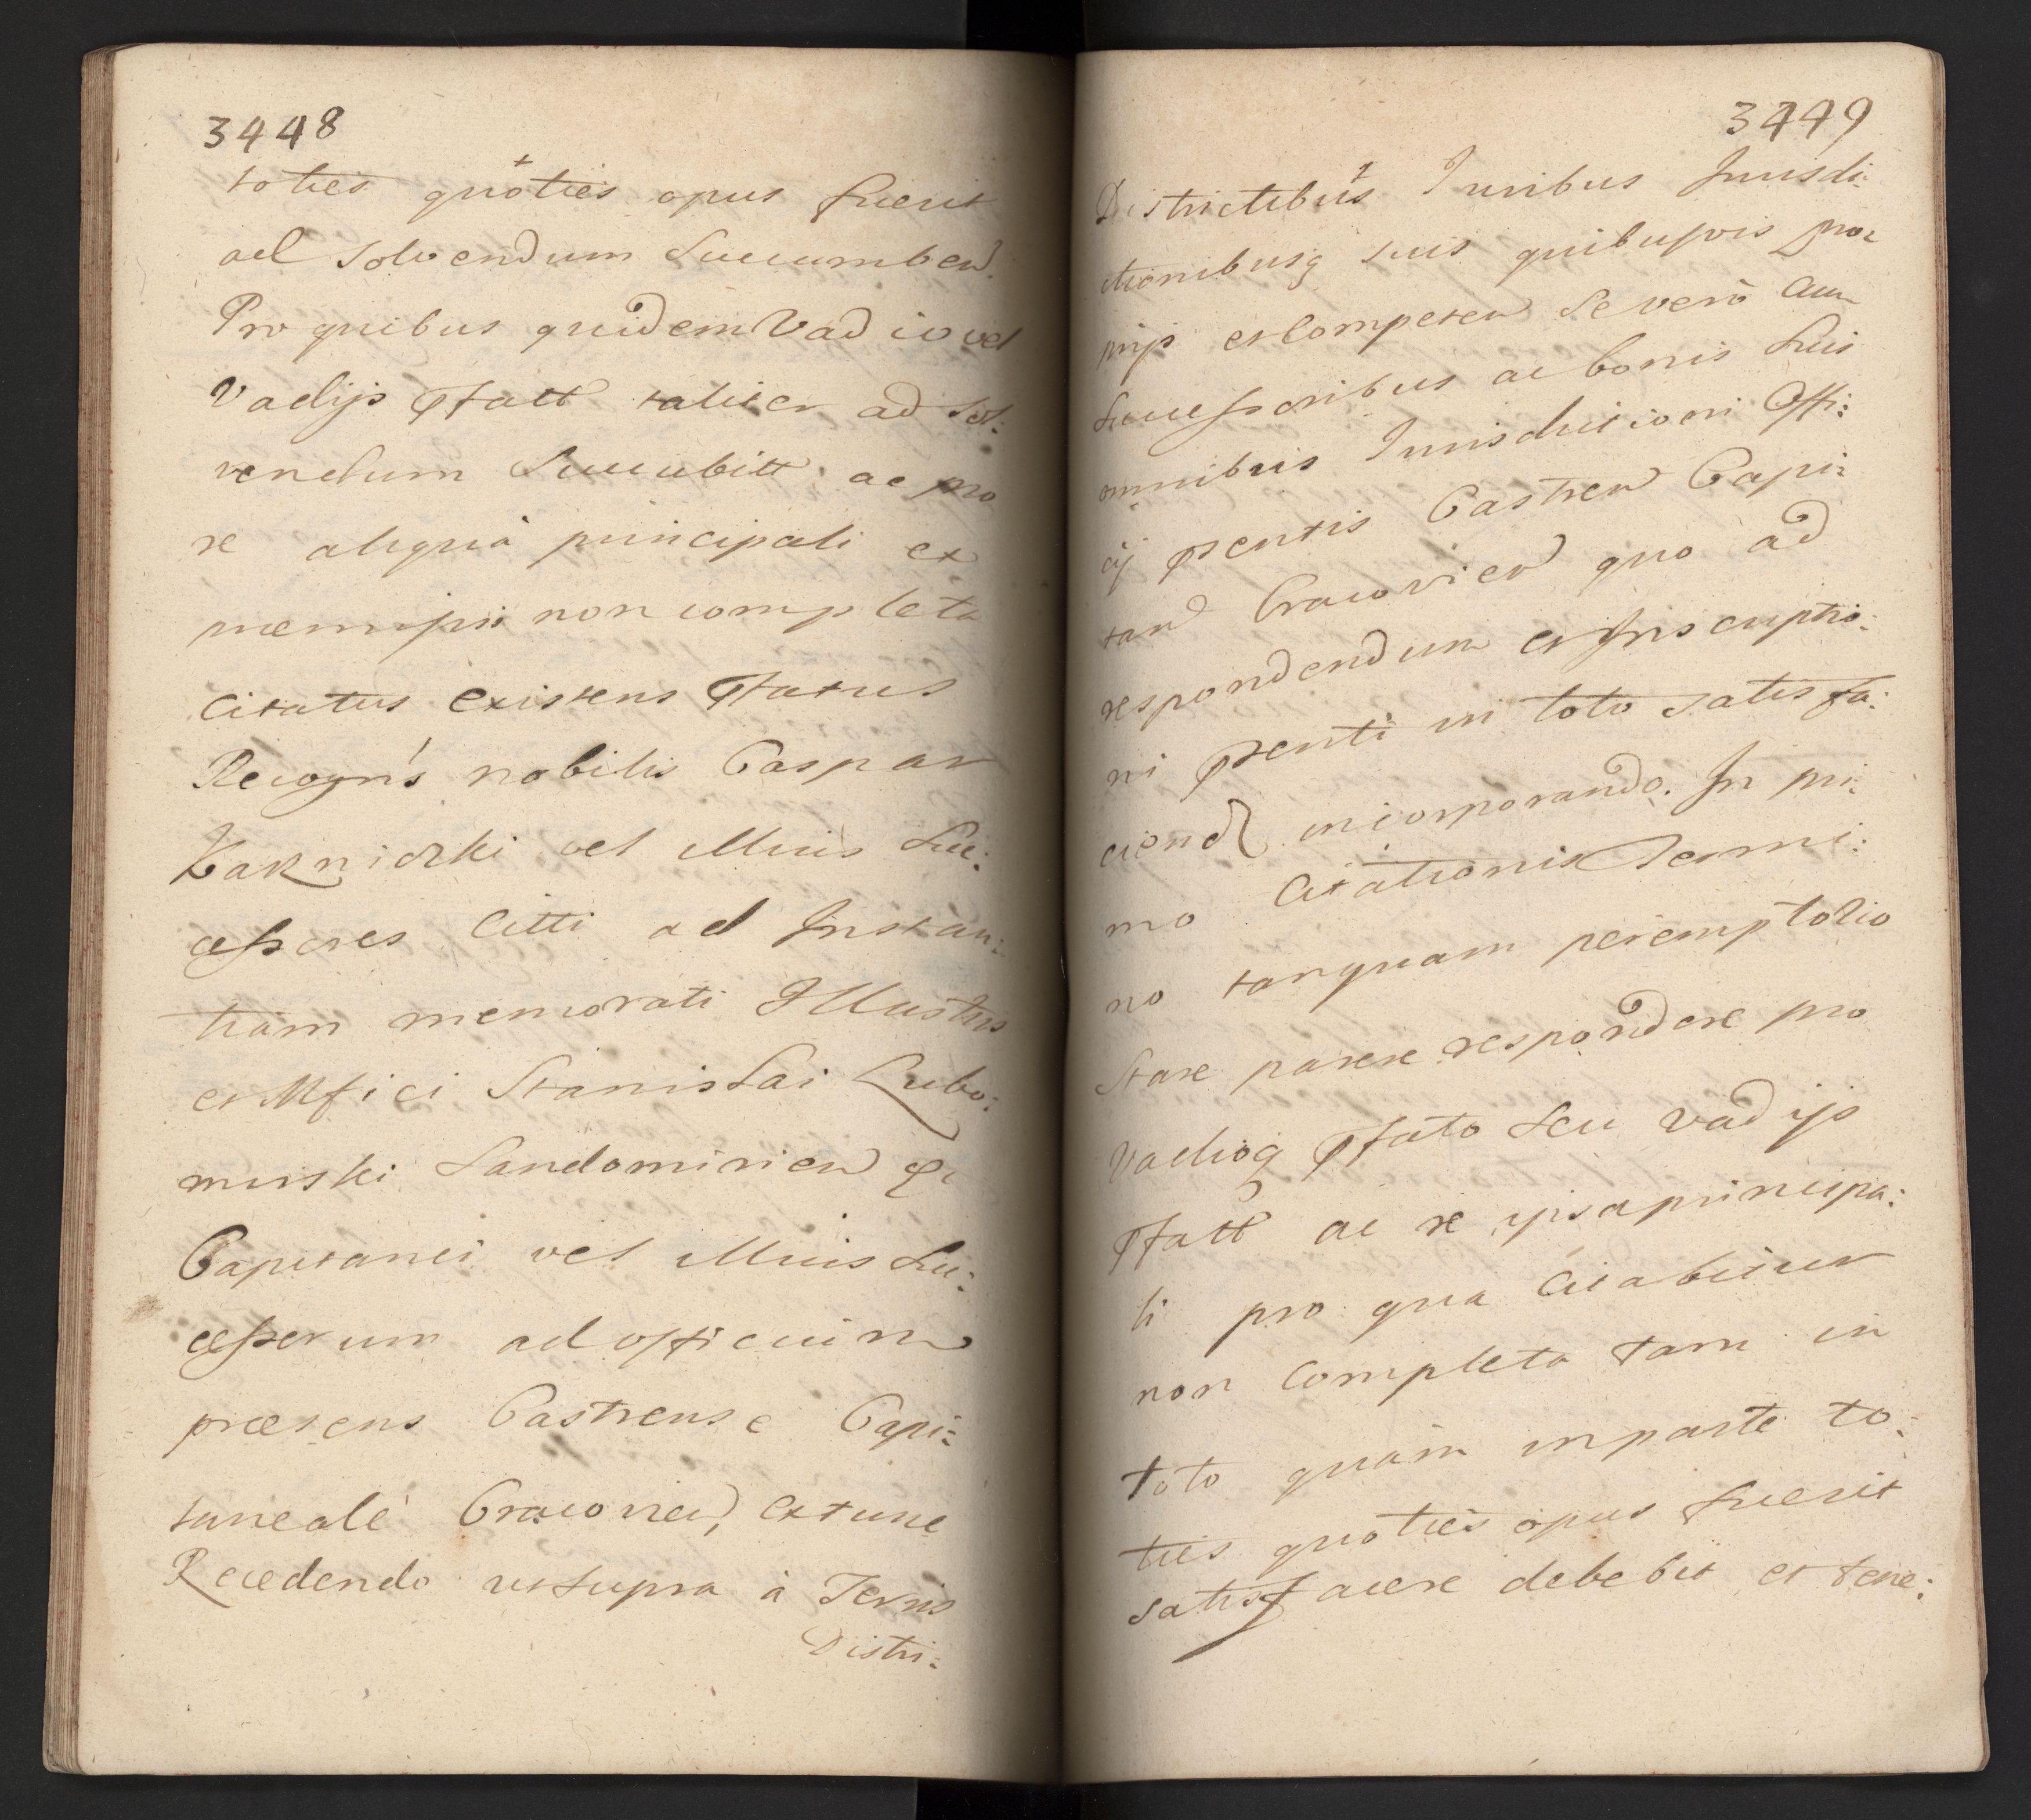 3448
toties quoties opus fuerit
ad solvendum Succumben
Pro quibus quidem Vadio vel
Vadijs Pfatt taliter ad sol:
vendum Succubitt ac pro
re aliqua principali ex
præmissis non completa
Citatus existens Pfatus
Recogn's nobilis Caspar
vel Illius Suc:
cessores Citti ad Instan:
tiam memorati Illustris
et Mfici Stanislai Lubo:
mirski Sandomirien &
Capitanei vel Illius Suc:
cessorum ad officium
præsens Castrense Capi:
taneale Cracovien, extunc
Recedendo ut supra à Terris
Distri:
3449
Districtibus Juribus Jurisdi:
ctionibusq suis quibusvis pro:
prijs et Competen se vero cum
Successoribus ac bonis suis
omnibus Jurisdictioni Offi:
cij Psentis Castren Capi:
tan Cracovien quo ad
respondendum et Inscriptio:
ni Psenti in toto satisfa:
ciend incorporando. In pri:
mo Citationis Termi:
no tanquam peremptorio
Stare parere respondere pro
Vadioq Pfato seu vadijs
Pfatt ac re ipsa principa:
li pro qua Citabitur
non completa tam in
toto quàm in parte to:
ties quoties opus fuerit
satisfacere debebit et tene: